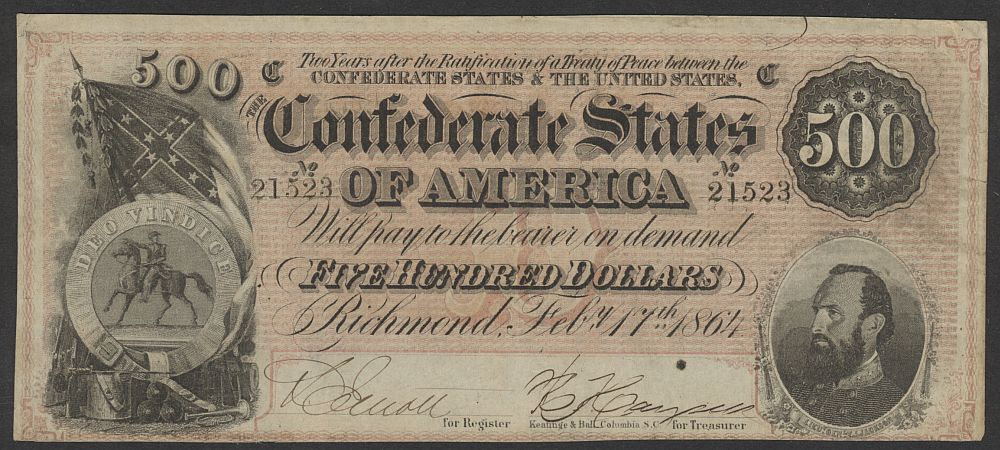 500 C Two Years after the Ratification of a Treaty of Peace between the C
CONFEDERATE STATES & THE UNITED STATES,
THE Confederate States 500
No 21523 OF AMERICA No 21523
DEO VINDICE
Will pay to the bearer on demand
FIVE HUNDRED DOLLARS
Richmond, Feby 17th 1864
for Register Keatinge & Ball, Columbia S.C. for Treasurer